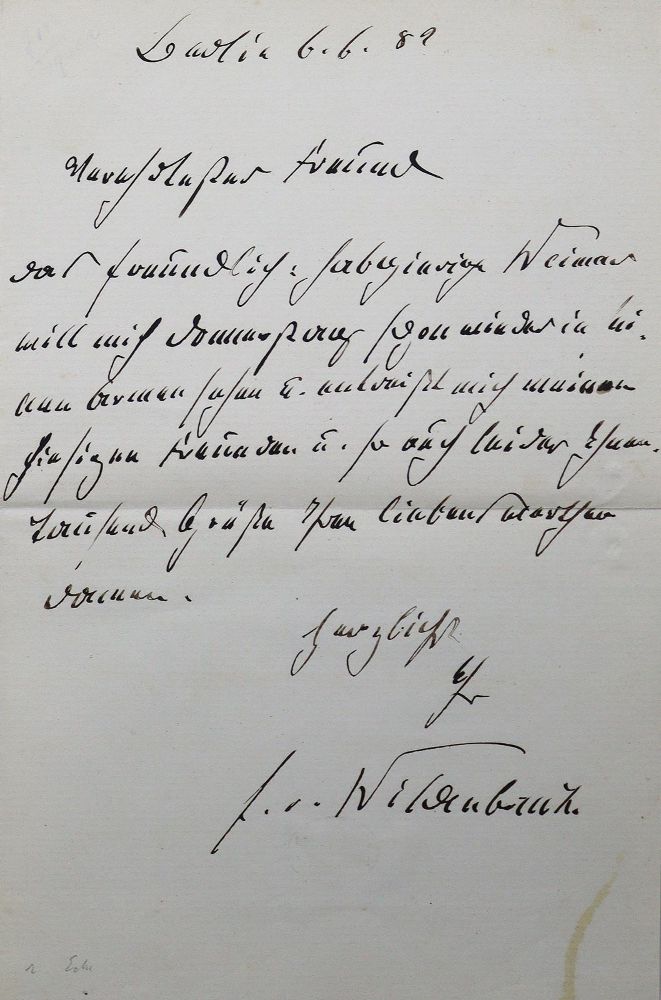 Berlin 6. 6. 89
Verehrtester Freund
das freundlich-habgierige Weimar
will mich Donnerstag schon wieder in sei-
nen Armen sehen u. entreißt mich meinen
hiesigen Freunden u. so auch leider Ihnen.
Tausend Grüße Ihren liebenswerthen
Damen.
Herzlichst
Ihr
E. v. Wildenbruch.